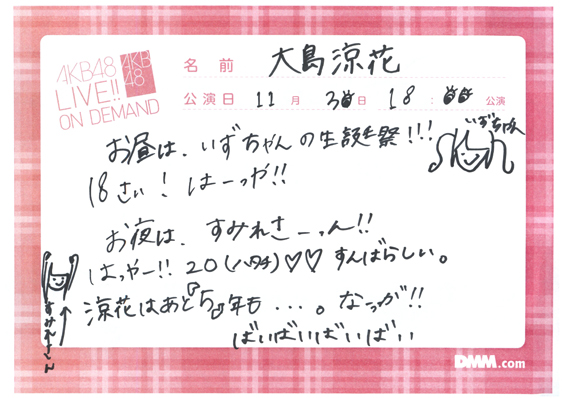 AKB48
LIVE!!
ON DEMAND
AKB
48
名前 大島涼花
公演日 11月 30日 18:00 公演
お昼は、いずちゃんの生誕祭!!!
いずちゃん
18さい! はーっや!!
お夜は、すみれさーん!!
はっやー!! 20(ハタチ)♡♡ すんばらしい。
涼花はあと『5』年も...。なっが!!
ばいばいばいばい
DMM.com